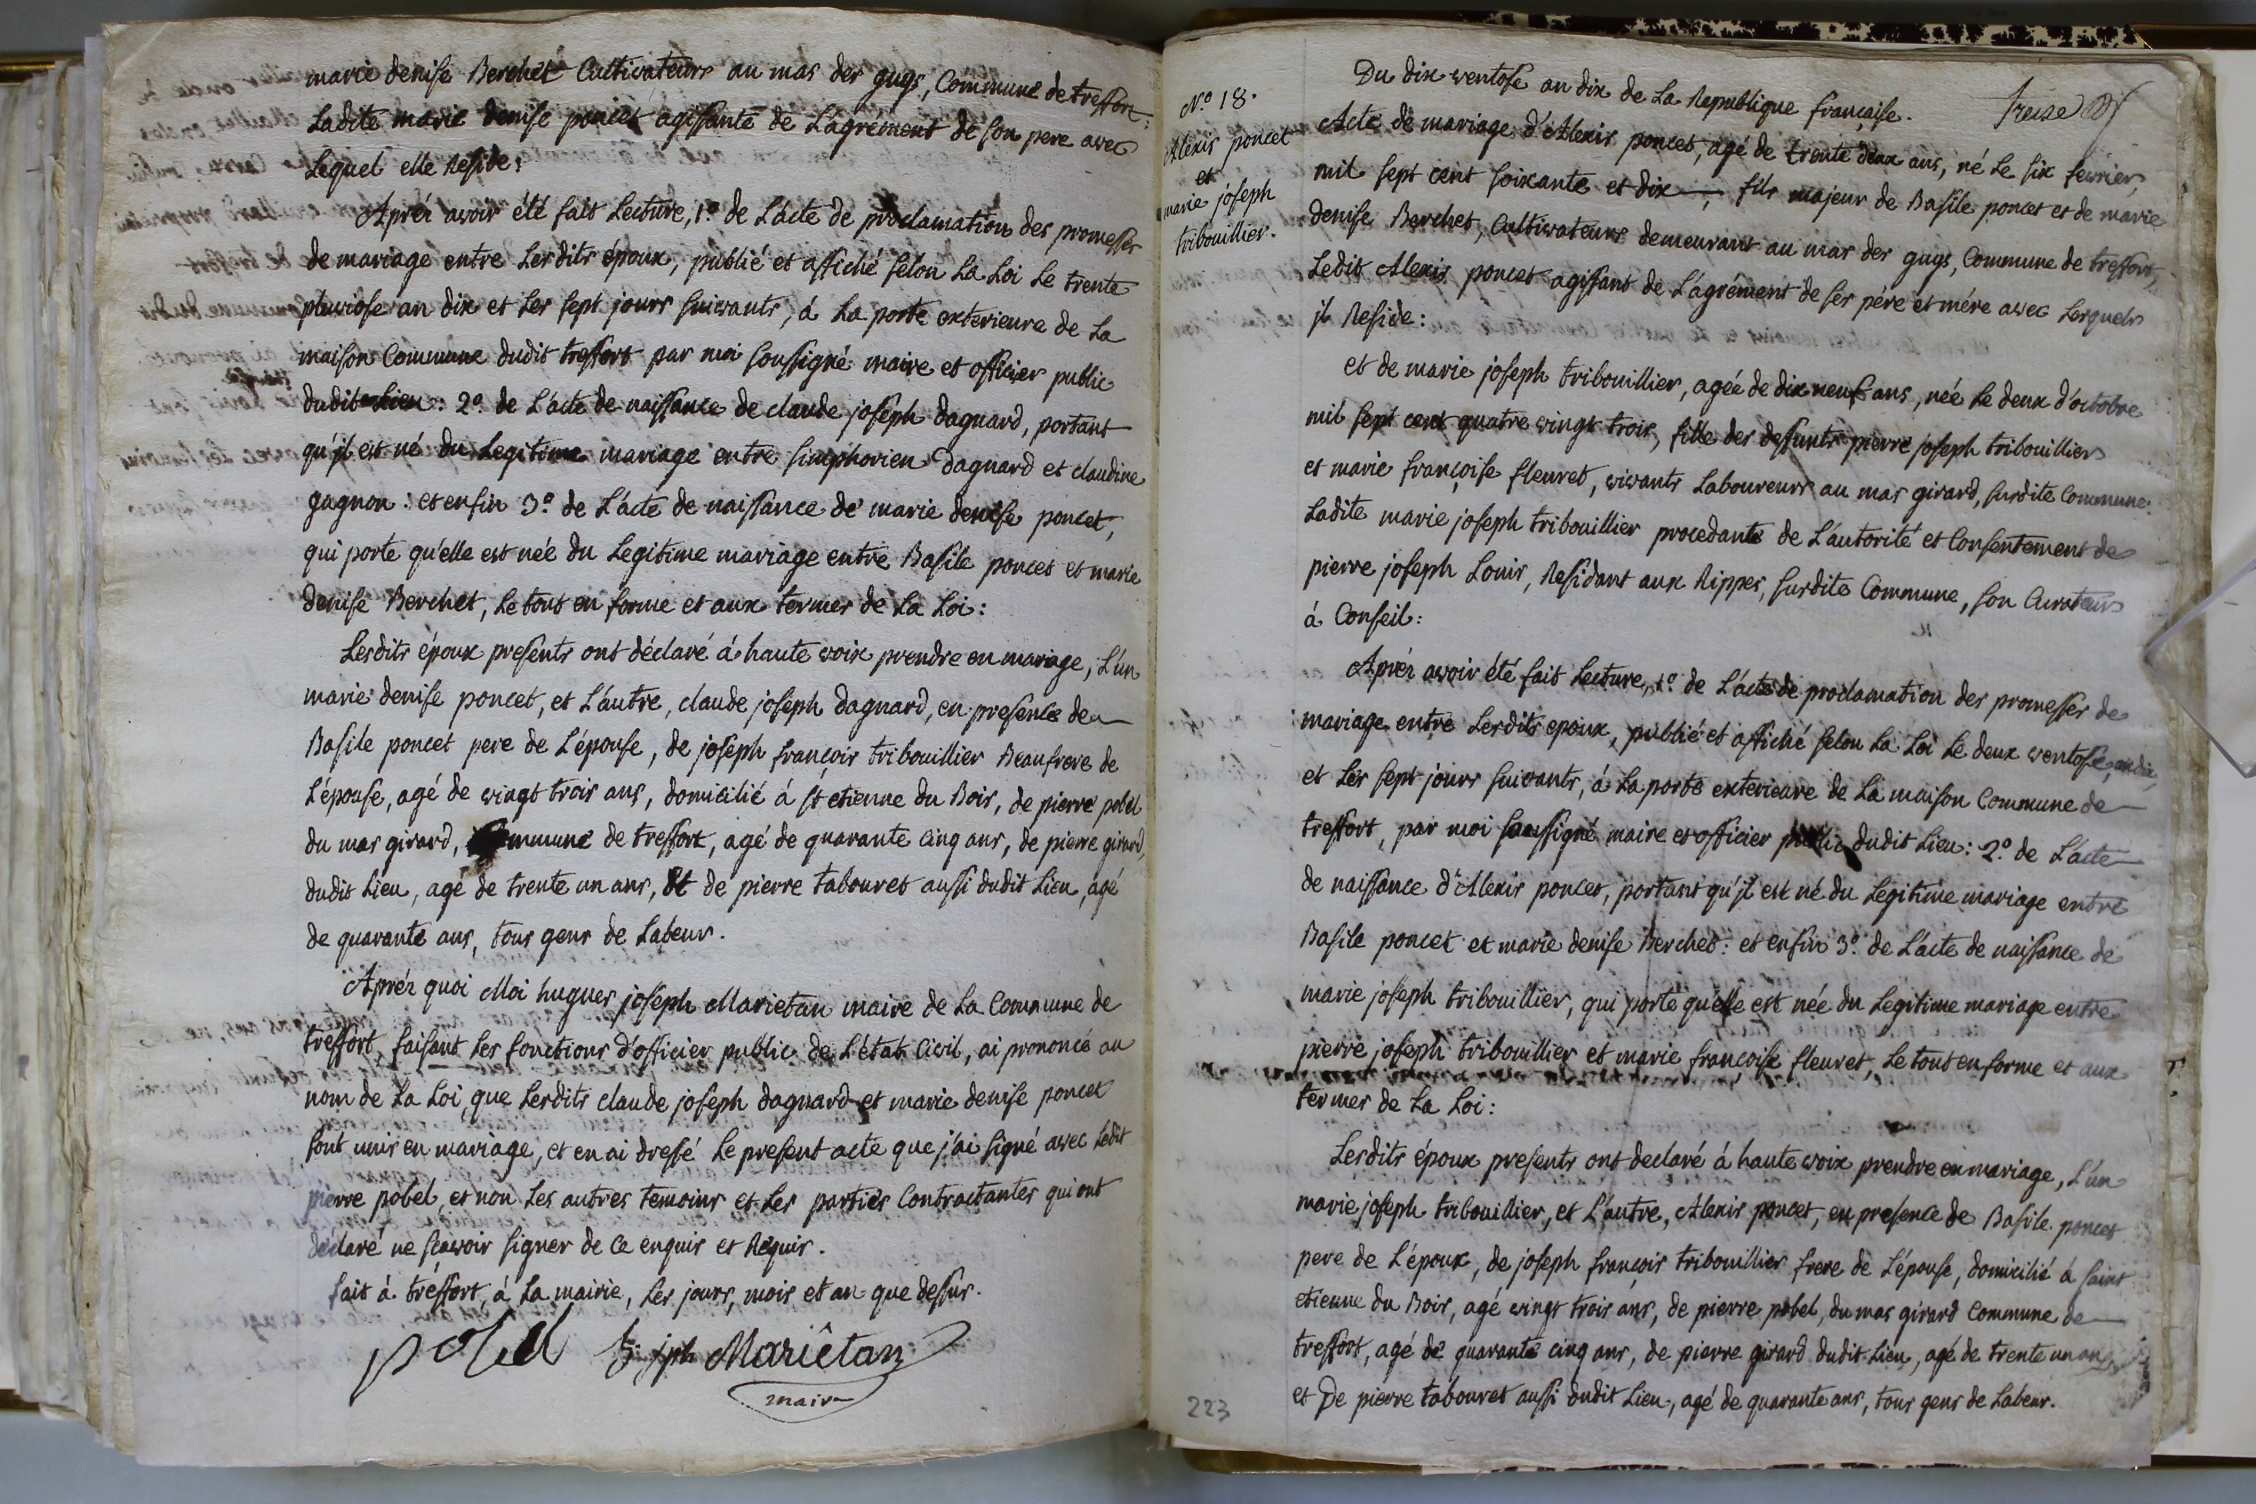 marie denise Berchet Cultivateurs au mas des gugs, Commune de treffort:
Ladite marie denise poncet agissante de L'agrément de son pere avec
Lequel elle Reside:
Aprés avoir été fait Lecture, 1.º de L'acte de proclamation des promesses
de mariage entre Lesdits époux, publié et affiché selon La Loi Le trente
pluviose an dix et Les sept jours suivants, á La porte exterieure de La
maison Commune dudit treffort par moi soussigné maire et officier public
dudit Lieu: 2.º de L'acte de naissance de claude joseph dagnard, portant
qu'il est né du Legitime mariage entre simphorien dagnard et claudine
gagnon: et enfin 3.º de L'acte de naissance de marie denise poncet,
qui porte qu'elle est née du Legitime mariage entre Basile poncet et marie
denise Berchet, Le tout en forme et aux termes de La Loi:
Lesdits époux presents ont déclaré á haute voix prendre en mariage, L'un
marie denise poncet, et L'autre, claude joseph dagnard, en presence de
Basile poncet pere de L'épouse, de joseph françois tribouillier Beaufrere de
L'épouse, agé de vingt trois ans, domicilié á st etienne du Bois, de pierre pobel
du mas girard, Commune de treffort, agé de quarante cinq ans, de pierre girard,
dudit Lieu, agé de trente un ans, Et de pierre tabouret aussi dudit Lieu, agé
de quarante ans, tous gens de Labeur.
Aprés quoi Moi hugues joseph Marietan maire de La Commune de
treffort, faisant Les fonctions d'officier public de L'état Civil, ai prononcé au
nom de La Loi, que Lesdits claude joseph dagnard et marie denise poncet
sont unis en mariage, et en ai dressé Le present acte que j'ai signé avec Ledit
pierre pobel, et non Les autres temoins et Les parties Contractantes qui ont
déclaré ne sçavoir signer de Ce enquis et Requis.
fait á tréffort, á La mairie, Les jours, mois et an que dessus.
pobel h: jph Mariêtan
maire
N.º 18.
Alexis poncet
et
marie joseph
tribouillier.
Du dix ventose an dix de La Republique française.
Acte de mariage d'Alexis poncet, agé de trente deux ans, né Le six fevrier,
mil sept cent soixante et dix, fils majeur de Basile poncet et de marie
denise Berchet, Cultivateurs demeurant au mas des gugs, Commune de treffort,
Ledit Alexis poncet agissant de L'agrément de ses pére et mére avec Lesquels
il Reside:
et de marie joseph tribouillier, agée de dix neuf ans, née Le deux d'octobre
mil sept cent quatre vingt trois, fille des deffunts pierre joseph tribouillier
et marie françoise fleuret, vivants Laboureurs au mas girard, susdite Commune:
Ladite marie joseph tribouillier procedante de L'autorité et Consentement de
pierre joseph Louis, Residant aux Rippes, susdite Commune, son Curateur
á Conseil:
Aprés avoir été fait Lecture, 1.º de L'acte de proclamation des promesses de
mariage entre Lesdits epoux, publié et affiché selon La Loi Le deux ventose, an dix,
et Les sept jours suivants, á La porte exterieure de La maison Commune de
treffort, par moi soussigné maire et officier public dudit Lieu: 2.º de L'acte
de naissance d'Alexis poncet, portant qu'il est né du Legitime mariage entre
Basile poncet et marie denise Berchet: et enfin 3.º de L'acte de naissance de
marie joseph tribouillier, qui porte qu'elle est née du Legitime mariage entre
pierre joseph tribouillier et marie françoise fleuret, Le tout en forme et aux
termes de La Loi:
Lesdits époux presents ont declaré á haute voix prendre en mariage, L'un
marie joseph tribouillier, et L'autre, Alexis poncet, en presence de Basile poncet
pere de L'époux, de joseph françois tribouillier frere de L'épouse, domicilié á saint
etienne du Bois, agé vingt trois ans, de pierre pobel, du mas girard Commune de
treffort, agé de quarante cinq ans, de pierre girard dudit Lieu, agé de trente un ans
et De pierre tabouret aussi dudit Lieu, agé de quarante ans, tous gens de Labeur.
223